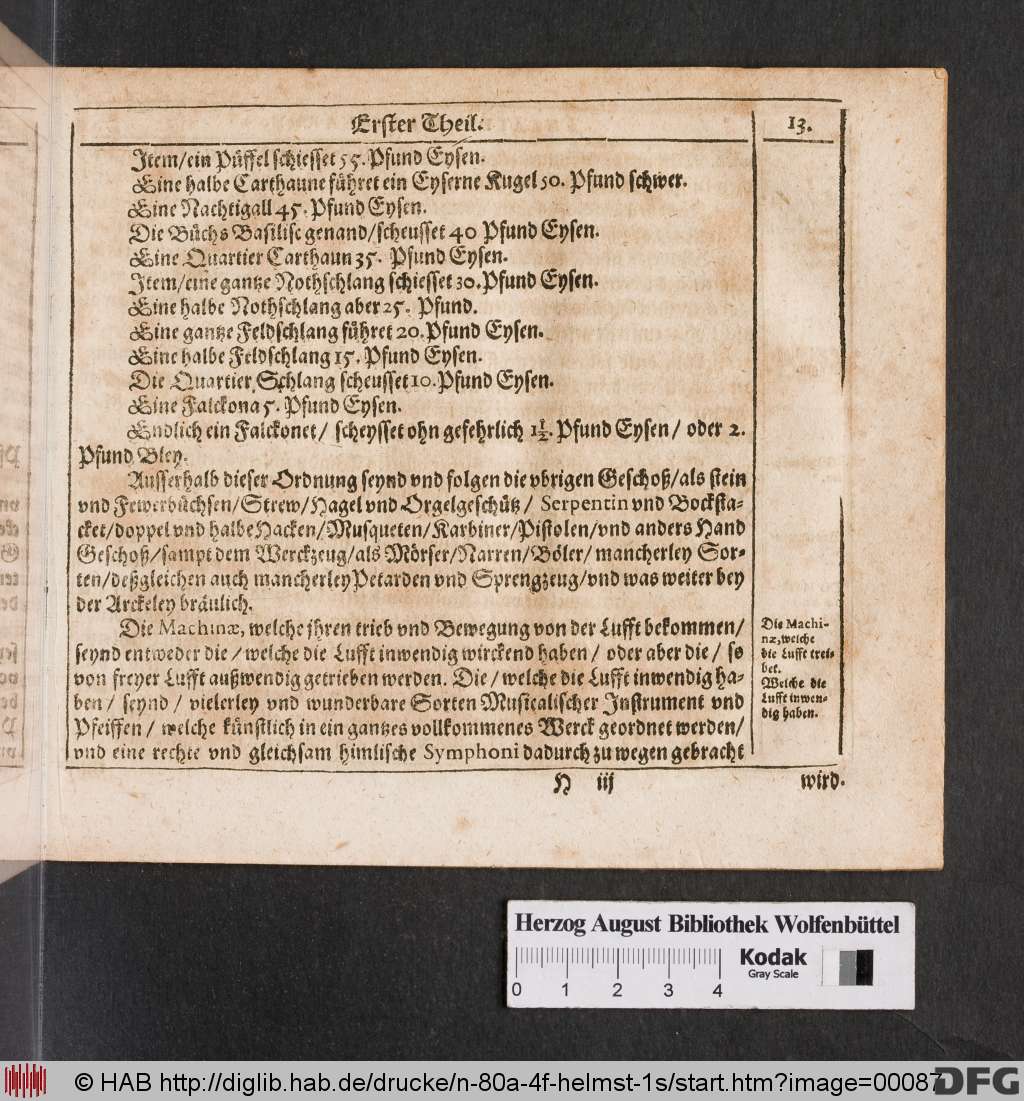 Erster Theil.
13.
Item/ein Püffel schiesset 55. Pfund Eysen.
Eine halbe Carthaune führet ein Eyserne Kugel 50. Pfund schwer.
Eine Nachtigall 45. Pfund Eysen.
Die Büchs Basilisc genand/scheusset 40 Pfund Eysen.
Eine Quartier Carthaun 35. Pfund Eysen.
Item/eine gantze Nothschlang schiesset 30. Pfund Eysen.
Eine halbe Nothschlang aber 25. Pfund.
Eine gantze Feldschlang führet 20. Pfund Eysen.
Eine halbe Feldschlang 15. Pfund Eysen.
Die Quartier Schlang scheusset 10. Pfund Eysen.
Eine Falckona 5. Pfund Eysen.
Endlich ein Falckonet/ scheysset ohn gefehrlich 1½. Pfund Eysen/ oder 2.
Pfund Bley.
Ausserhalb dieser Ordnung seynd vnd folgen die vbrigen Geschoß/als stein
vnd Fewerbüchsen/Strew/Hagel vnd Orgelgeschütz/ Serpentin vnd Bocksta-
cket/doppel vnd halbe Hacken/Musqueten/Karbiner/Pistolen/vnd anders Hand
Geschoß/sampt dem Werckzeug/als Mörser/Narren/Böler/ mancherley Sor-
ten/deßgleichen auch mancherley Petarden vnd Sprengzeug/vnd was weiter bey
der Arckeley bräulich.
Die Machinæ, welche jhren trieb vnd Bewegung von der Lufft bekommen/
seynd entweder die/welche die Lufft inwendig wirckend haben/ oder aber die/ so
von freyer Lufft außwendig getrieben werden. Die/welche die Lufft inwendig ha-
ben/ seynd/ vielerley vnd wunderbare Sorten Musicalischer Instrument vnd
Pfeiffen/ welche künstlich in ein gantzes vollkommenes Werck geordnet werden/
vnd eine rechte vnd gleichsam himlische Symphoni dadurch zu wegen gebracht
Die Machi-
næ, welche
die Lufft trei-
bet.
Welche die
Lufft inwen-
dig haben.
H iij
wird.
Herzog August Bibliothek Wolfenbüttel
Kodak
Gray Scale
0 1 2 3 4
© HAB http://diglib.hab.de/drucke/n-80a-4f-helmst-1s/start.htm?image=00087
DFG